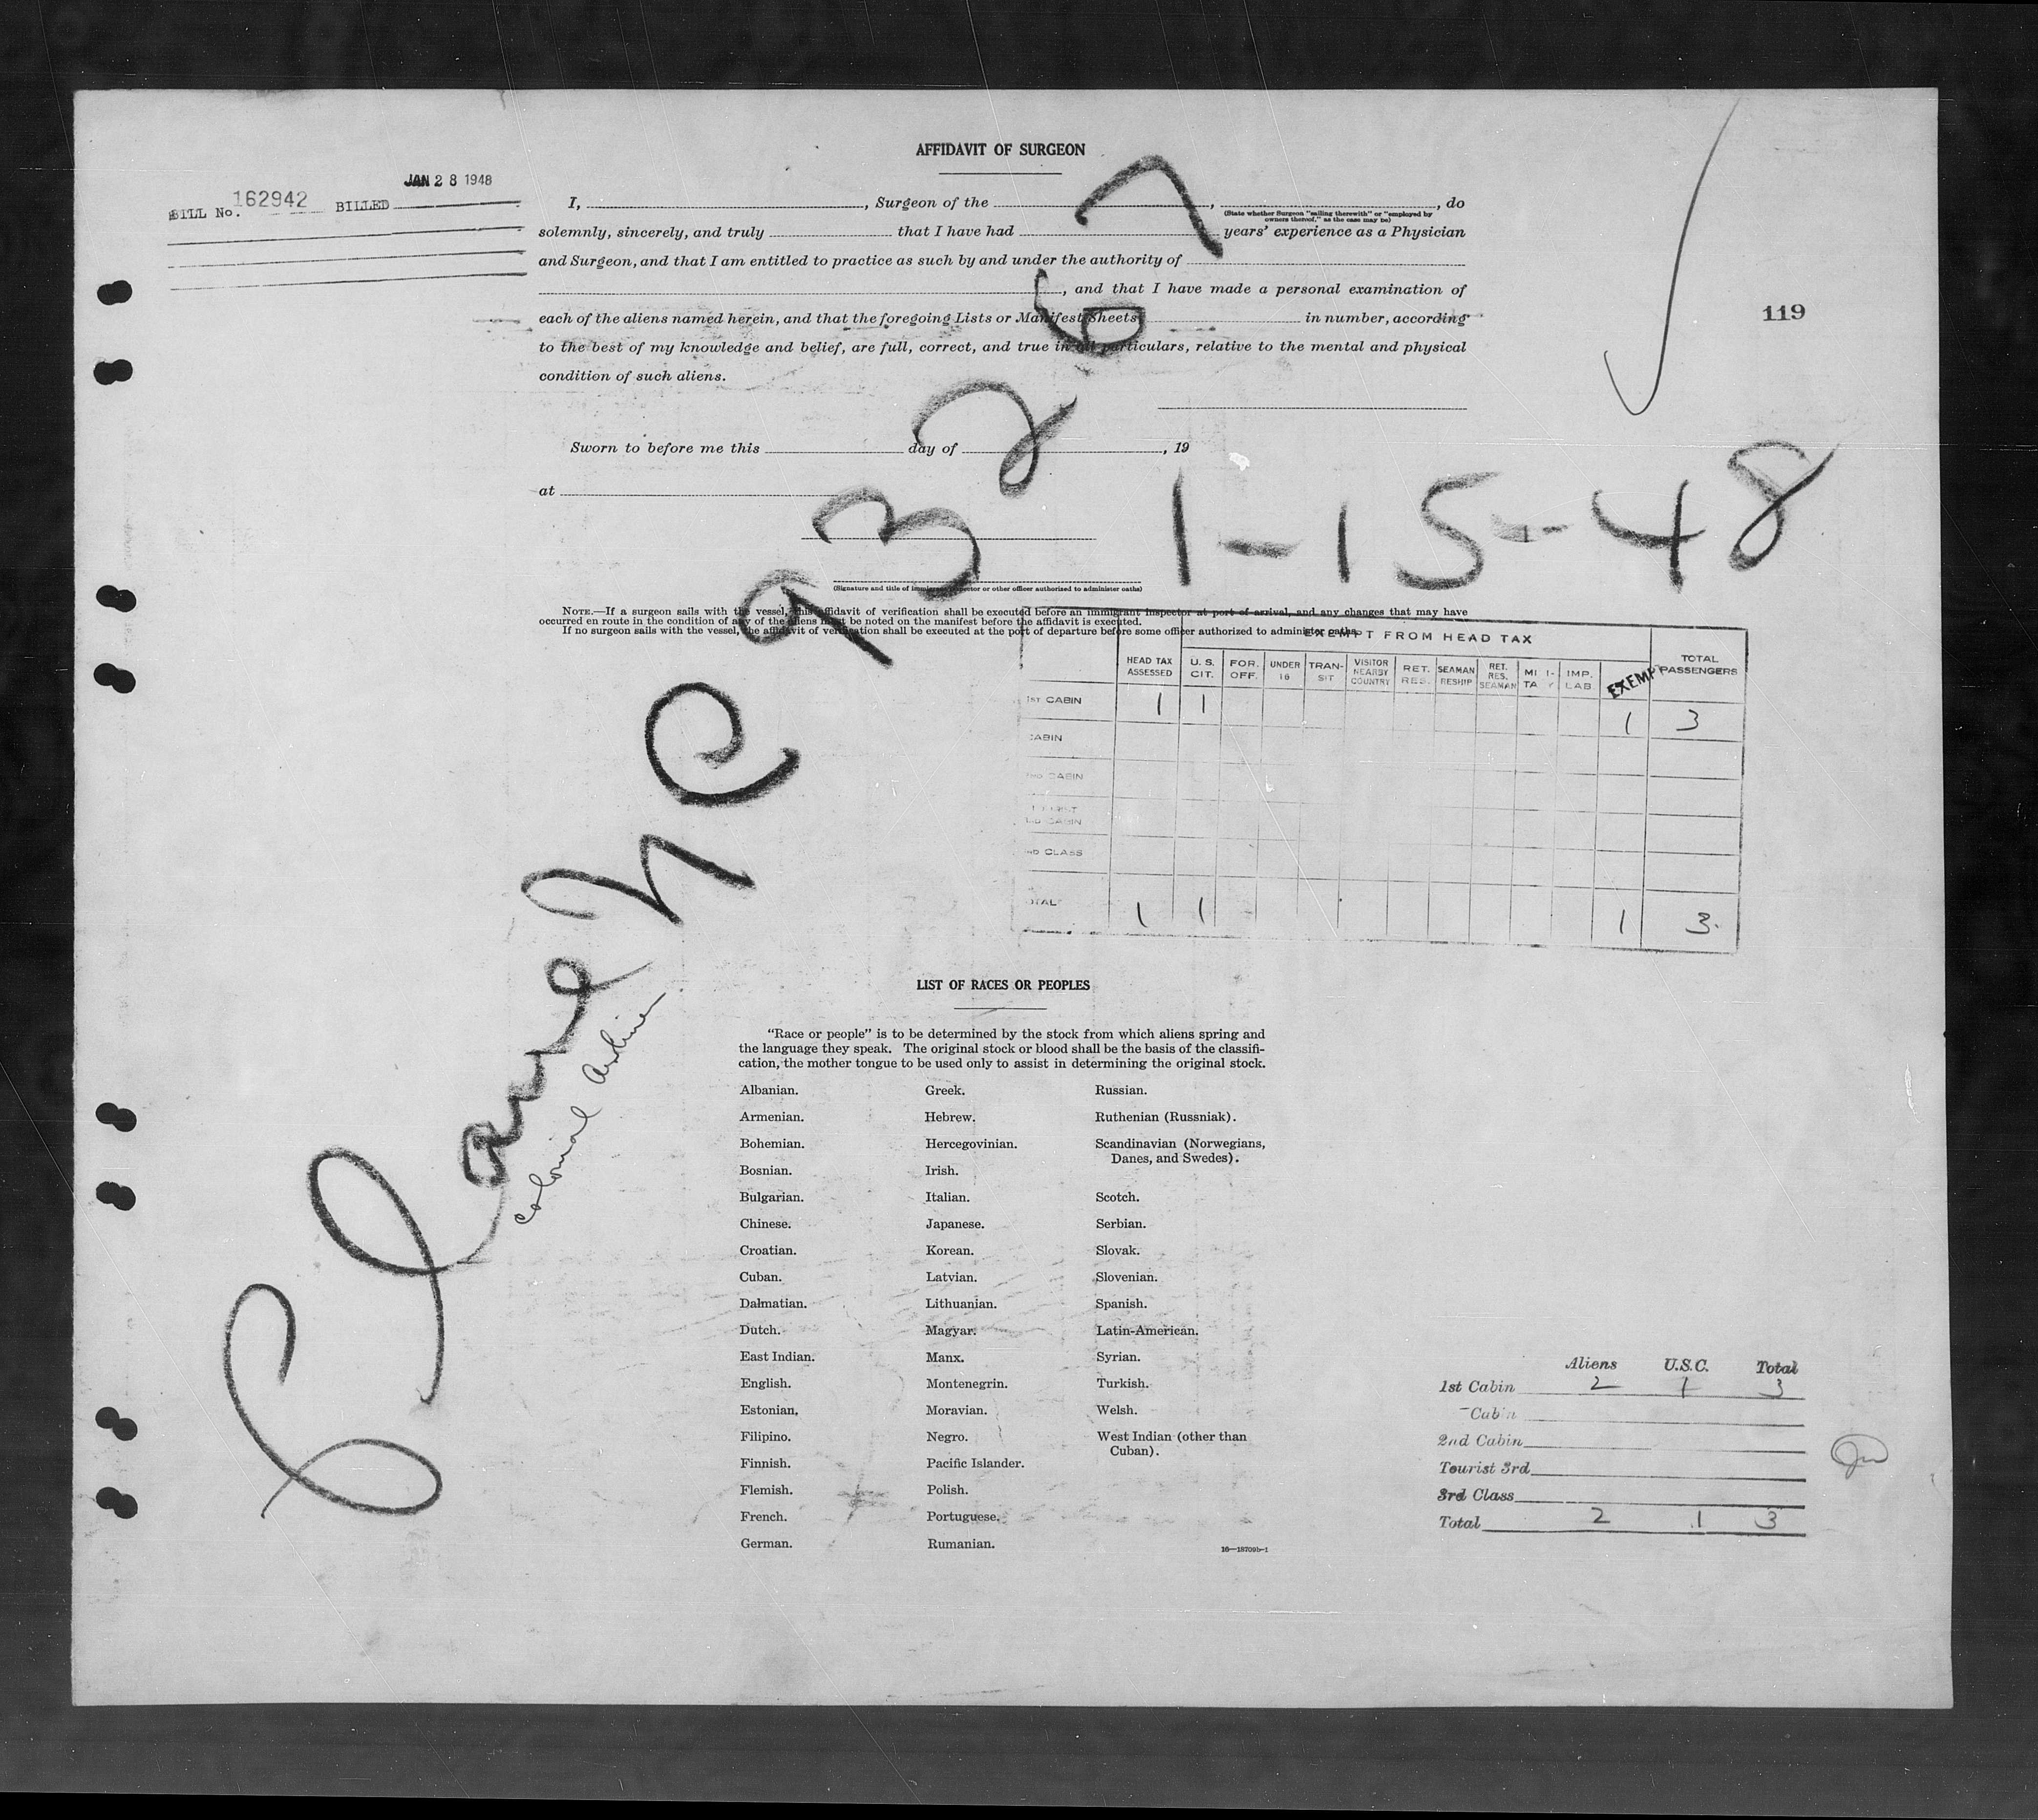 AFFIDAVIT OF SURGEON
JAN 28 1948
BILL No. 162942 BILLED
I, , Surgeon of the , , do
(State whether Surgeon "sailing therewith" or "employed by
owners thereof," as the case may be)
solemnly, sincerely, and truly that I have had years' experience as a Physician
and Surgeon, and that I am entitled to practice as such by and under the authority of
, and that I have made a personal examination of
each of the aliens named herein, and that the foregoing Lists or Manifest Sheets, in number, according
to the best of my knowledge and belief, are full, correct, and true in all particulars, relative to the mental and physical
condition of such aliens.
119
Sworn to before me this day of , 19
at
1-15-48
(Signature and title of immigrant inspector or other officer authorized to administer oaths)
NOTE.—If a surgeon sails with the vessel, this affidavit of verification shall be executed before an immigrant inspector at port of arrival, and any changes that may have
occurred en route in the condition of any of the aliens must be noted on the manifest before the affidavit is executed.
If no surgeon sails with the vessel, the affidavit of verification shall be executed at the port of departure before some officer authorized to administer oaths.
NC 93267
Colonial
EXEMPT FROM HEAD TAX
HEAD TAX ASSESSED U. S. CIT. FOR. OFF. UNDER 16 TRANSIT VISITOR NEARBY COUNTRY RET. RES. SEAMAN RESHIP RET. RES. SEAMAN MILITARY IMP. LAB. EXEMPT TOTAL PASSENGERS
1ST CABIN 1 1 1 3
CABIN
2ND CABIN
TOURIST
3RD CABIN
3RD CLASS
TOTAL 1 1 1 3.
LIST OF RACES OR PEOPLES
"Race or people" is to be determined by the stock from which aliens spring and
the language they speak. The original stock or blood shall be the basis of the classifi-
cation, the mother tongue to be used only to assist in determining the original stock.
Albanian.
Armenian.
Bohemian.
Bosnian.
Bulgarian.
Chinese.
Croatian.
Cuban.
Dalmatian.
Dutch.
East Indian.
English.
Estonian.
Filipino.
Finnish.
Flemish.
French.
German.
Greek.
Hebrew.
Hercegovinian.
Irish.
Italian.
Japanese.
Korean.
Latvian.
Lithuanian.
Magyar.
Manx.
Montenegrin.
Moravian.
Negro.
Pacific Islander.
Polish.
Portuguese.
Rumanian.
Russian.
Ruthenian (Russniak).
Scandinavian (Norwegians,
Danes, and Swedes).
Scotch.
Serbian.
Slovak.
Slovenian.
Spanish.
Latin-American.
Syrian.
Turkish.
Welsh.
West Indian (other than
Cuban).
16—18709b-1
Aliens U.S.C. Total
1st Cabin 2 1 3
Cabin
2nd Cabin
Tourist 3rd
3rd Class
Total 2 1 3